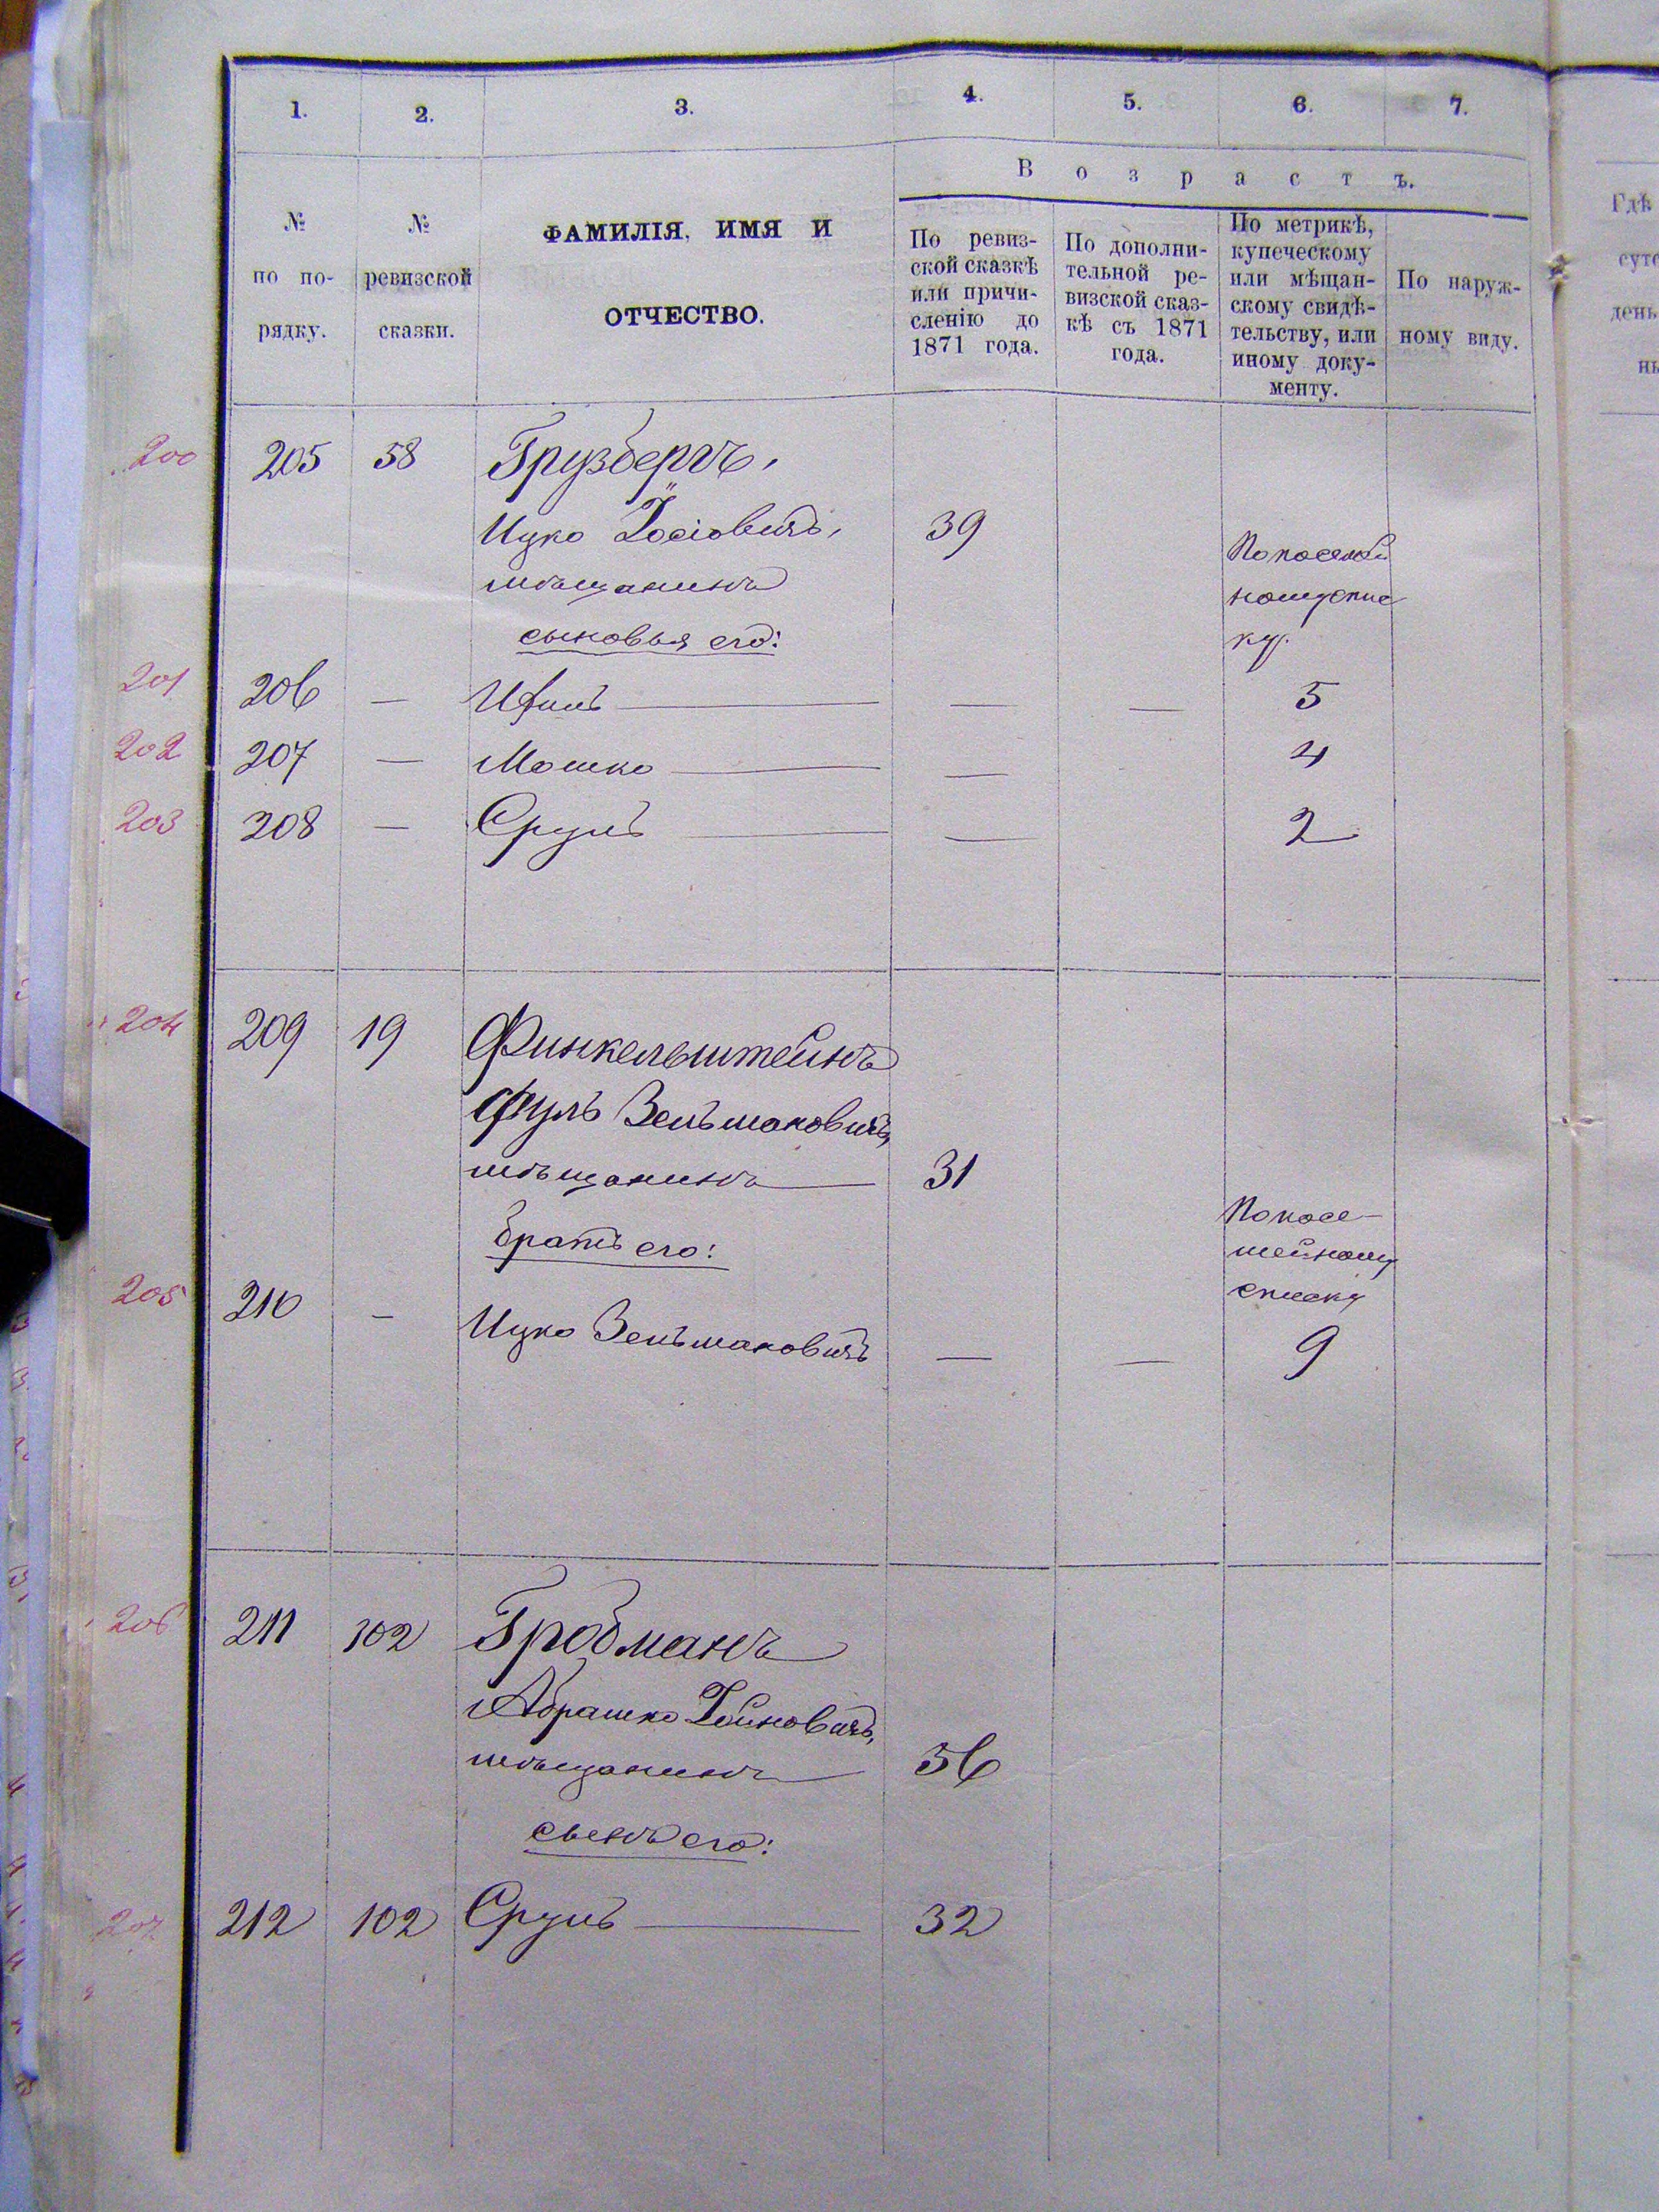 1. 2. 3. 4. 5. 6. 7.
В о з р а с т ъ.
№ по порядку.
№ ревизской сказки.
ФАМИЛІЯ, ИМЯ И
ОТЧЕСТВО.
По ревиз-
ской сказкѣ
или причи-
сленію до
1871 года.
По дополни-
тельной ре-
визской сказ-
кѣ съ 1871
года.
По метрикѣ,
купеческому
или мѣщан-
скому свидѣ-
тельству, или
иному доку-
менту.
По наруж-
ному виду.
Гдѣ
день
200 205 58 Грузбергъ,
Ицко Іосіовичъ, 39
мѣщанинъ
сыновья его:
По посемей
ному спис
ку.
201 206 — — — 5
202 207 — Мошко — 4
203 208 — Сруль — 2
204 209 19 Финкельштейнъ
Зельмановичъ,
мѣщанинъ 31
братъ его:
По посе-
мейному
списку
205 210 - Ицко Зельмановичъ — — 9
206 211 102 Гробманъ
Абрашко Хаимовичъ,
мѣщанинъ 56
сынъ его:
207 212 102 Сруль 32